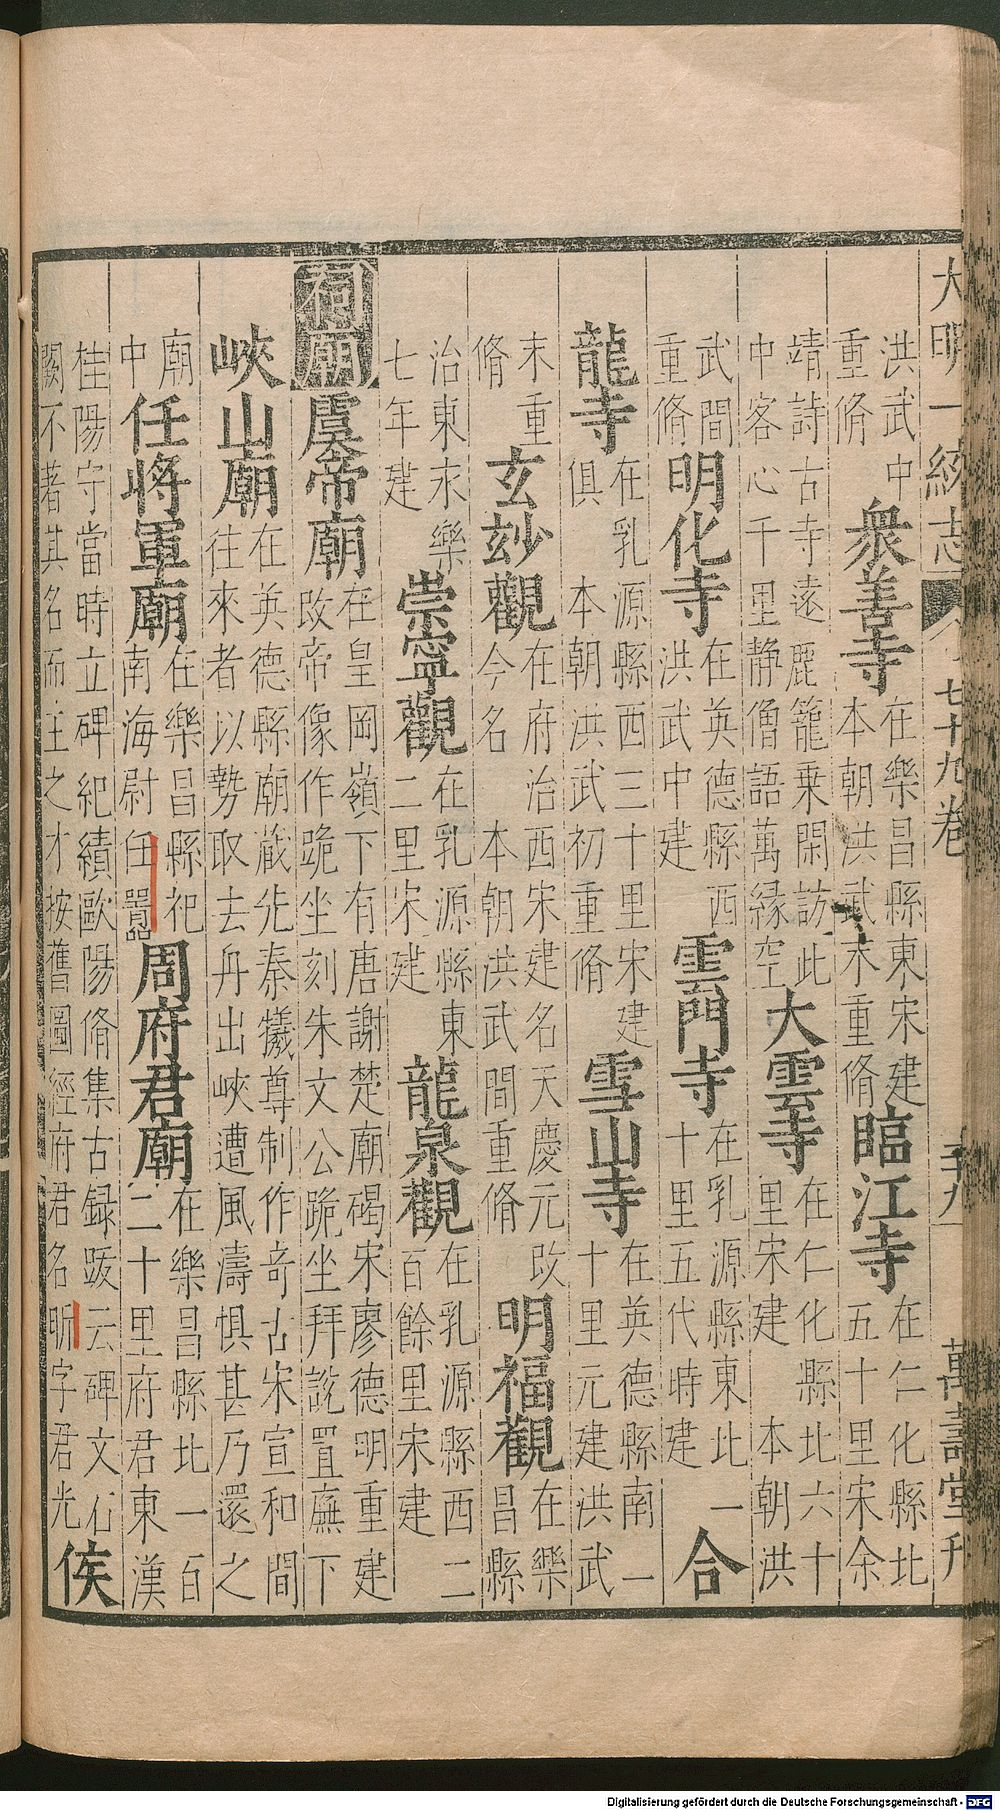 大明一統志 七十九卷 萬壽堂刊
洪武中重脩衆善寺在樂昌縣東宋建本朝洪武末重脩臨江寺在仁化縣北五十里宋余
靖詩古寺遠麗籠乗閑訪此中客心千里静僧語萬縁空大雲寺在仁化縣北六十里宋建本朝洪
武間重脩明化寺在英德縣西洪武中建雲門寺在乳源縣東北一十里五代時建合
龍寺在乳源縣西三十里宋建俱本朝洪武初重脩雪山寺在英德縣南一十里元建洪武
末重脩玄妙觀在府治西宋建名天慶元改今名本朝洪武間重脩明福觀在樂昌縣
治東永樂七年建崇寧觀在乳源縣東二里宋建龍泉觀在乳源縣西二百餘里宋建
祠廟虞帝廟在皇岡嶺下有唐謝楚廟碣宋廖德明重建改帝像作跪坐刻朱文公跪坐拜說置廡下
峽山廟在英德縣廟藏先秦犧尊制作竒古宋宣和間往來者以勢取去舟出峽遭風濤惧甚乃還之
廟中任將軍廟在樂昌縣祀南海尉任囂周府君廟在樂昌縣北一百二十里府君東漢
桂陽守當時立碑紀績歐陽脩集古録跋云碑文石闕不著其名而王之才按舊圖經府君名昕字君光侯